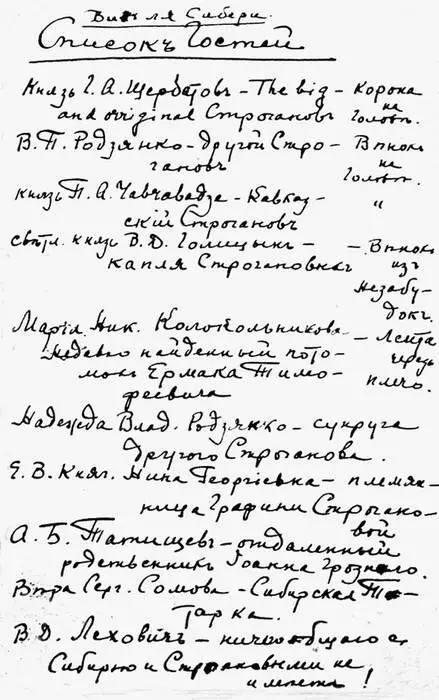 Вигля Сибери.
Списокъ Гостей
Князь Г. А. Щербатовъ – The big – Корона
and original Строгановъ на
В. П. Родзянко – другой Стро- Головѣ.
гановъ Вѣнокъ
на
Головѣ.
князь П. А. Чавчавадзе – Кавказ- "
скій Строгановъ
свѣтл. князь В. Д. Голицынъ – – Вѣнокъ
капля Строгановыхъ изъ
незабу-
докъ.
Марія Ник. Колокольникова – Лента
Недавно найденный пото- черезъ
мокъ Ермака Тимо- плечо.
феевича
Надежда Влад. Родзянко – супруга
другого Строганова.
Е. В. Княг. Нина Георгіевна – племян-
ница Графини Строгано-
вой
А. Б. Татищевъ – отдаленный
родственникъ Іоанна Грознаго.
Вѣра Серг. Сомова – Сибирская Та-
тарка.
В. Д. Леховичъ – ничего общаго съ
Сибирью и Строгановыми не
имѣетъ!